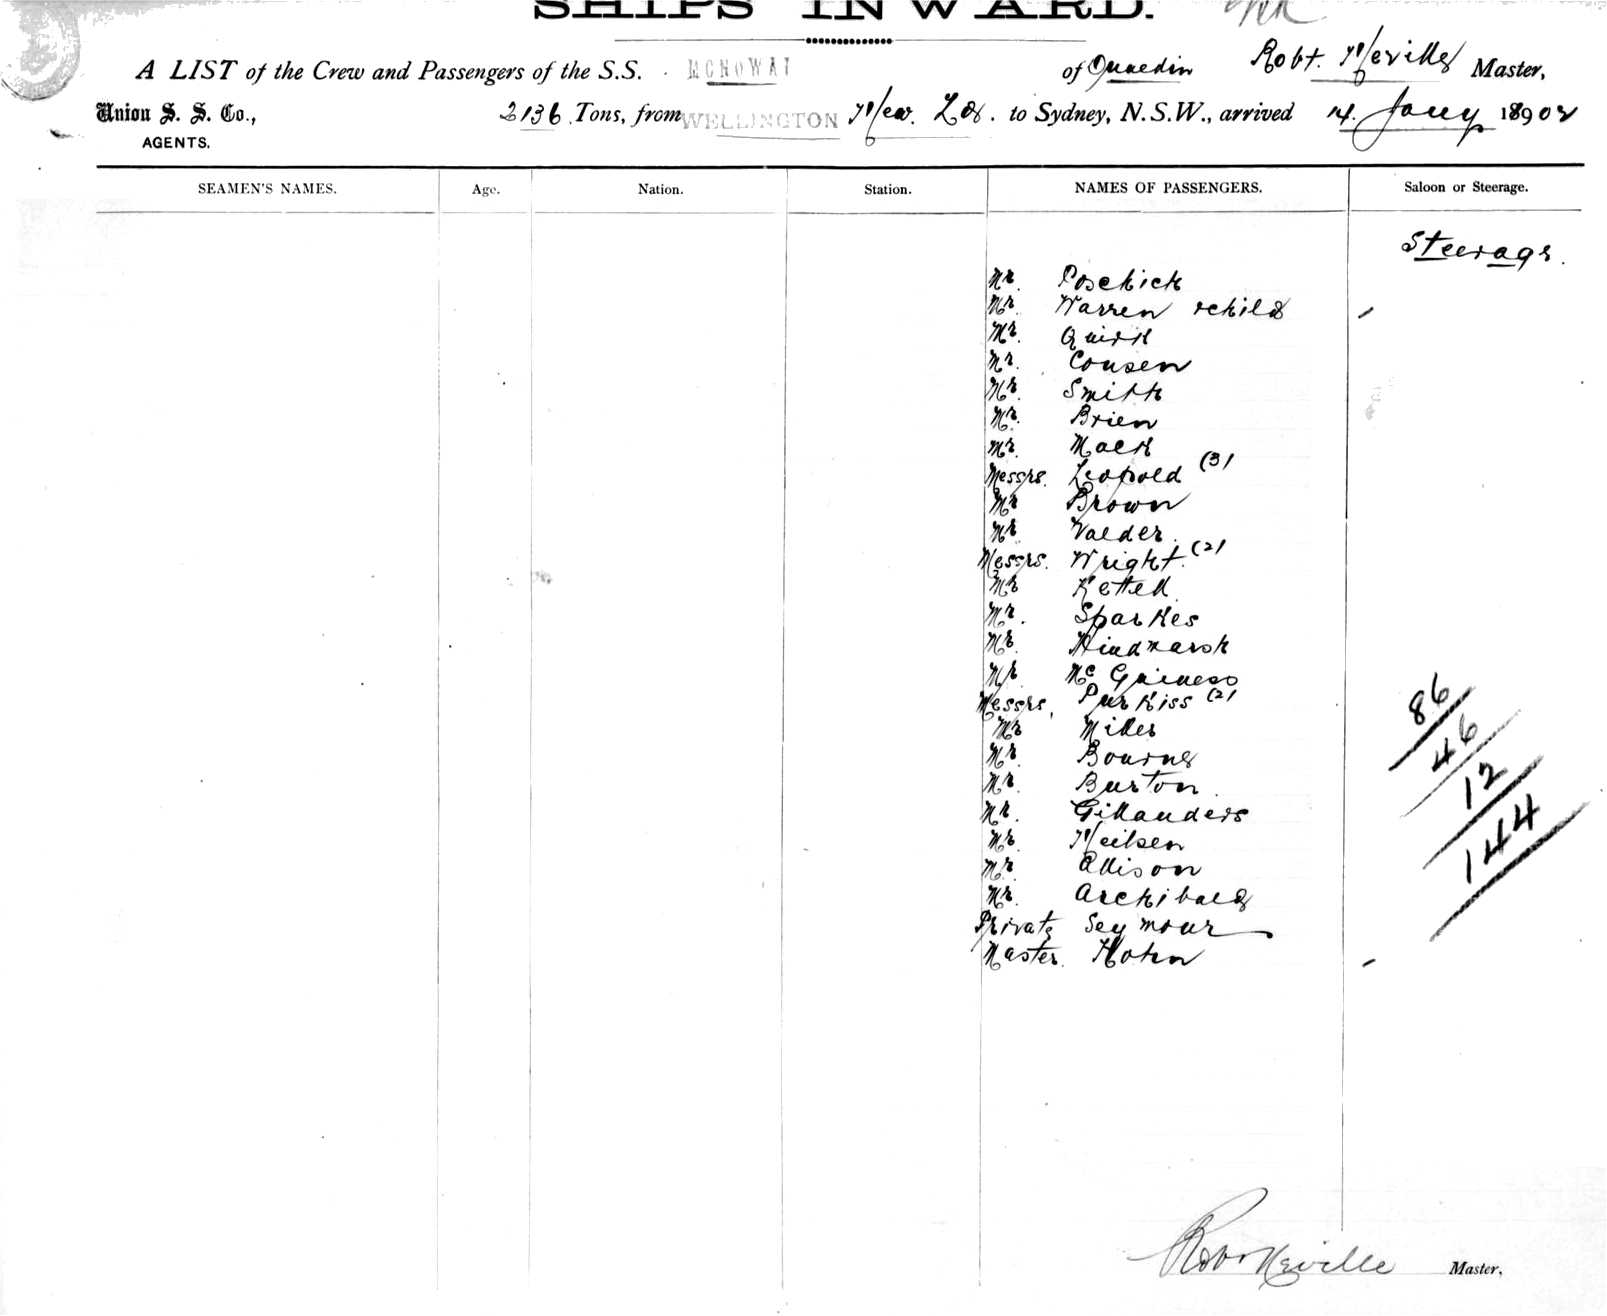 SHIPS INWARD.
A LIST of the Crew and Passengers of the S.S. MONOWAI of Dunedin Robt. Neville Master,
Union S. S. Co., 2136 Tons, from WELLINGTON New Zd. to Sydney, N.S.W., arrived 14. Jany 18902
AGENTS.
SEAMEN'S NAMES. Age. Nation. Station. NAMES OF PASSENGERS. Saloon or Steerage.
Steerage.
Mr. Poschich
Mr. Warren & child
Mr. Quirk
Mr. Cousen
Mr. Smith
Mr. Brien
Mr. Mack
Messrs. Leopold (3)
Mr Brown
Mr Valder.
Messrs. Wright. (2)
Mr Kettell
Mr. Sparkes
Mr. Hindmarsh
Mr McGuiness
Messrs, Purkiss (2)
Mr Miller
Mr. Bourne
Mr. Burton
Mr. Gillanders
Mr. Neilsen
Mr. Allison
Mr. Archibald
Private Seymour
Master. Hohn
86
46
12
144
Robt Neville Master,